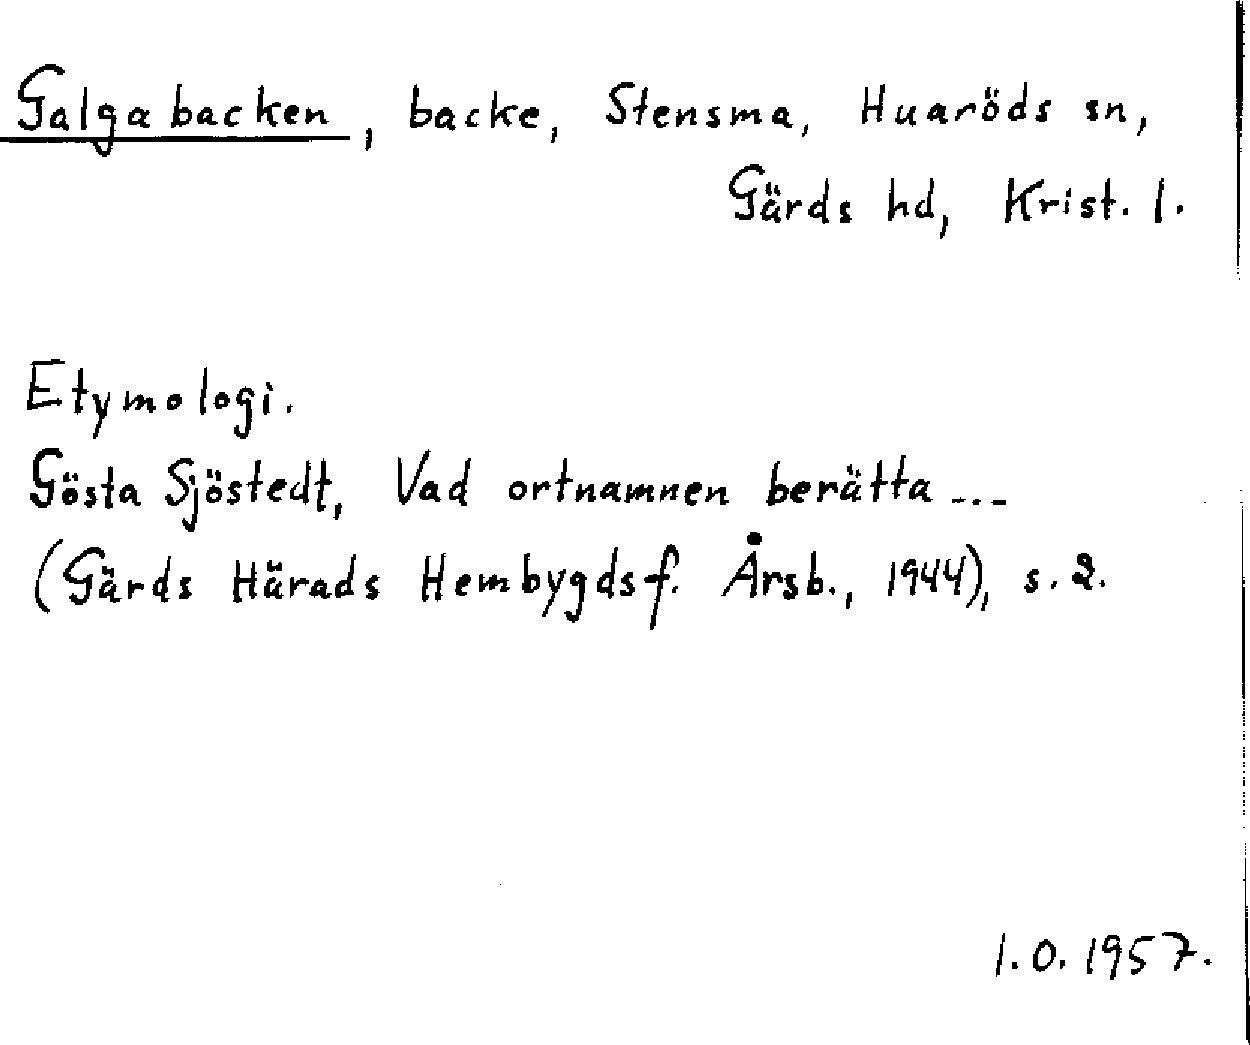 Galgabacken, backe, Stensma, Huaröds sn,
Gärds hd, Krist. l.
Etymologi.
Gösta Sjöstedt, Vad ortnamnen berätta ...
(Gärds Härads Hembygdsf. Årsb., 1944), s. 2.
l. o. 1957.